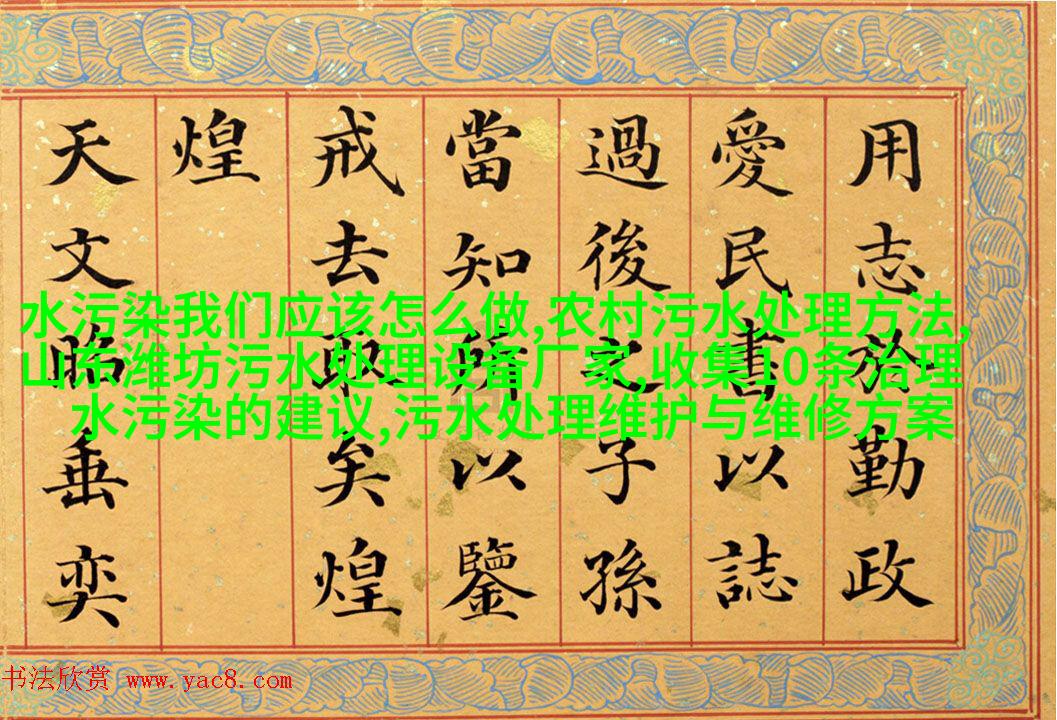 用志於勤政
愛民書以誌
過後之子孫
當知以鑒
戒去取矣煌
煌
天文昭垂奕
水污染我们应该怎么做,农村污水处理方法,
山东潍坊污水处理设备厂家,收集10条治理
水污染的建议,污水处理维护与维修方案
书法欣赏 www.yac8.com